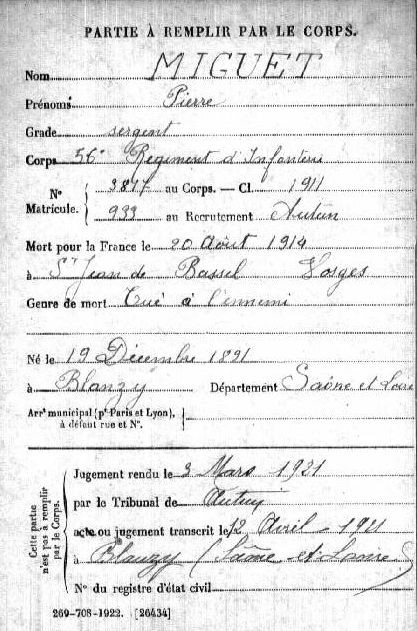 PARTIE À REMPLIR PAR LE CORPS.
Nom MIGUET
Prénoms Pierre
Grade sergent
Corps 56e Régiment d'Infanterie
N° Matricule. { 3817 au Corps. — Cl. 1911
933 au Recrutement Autun
Mort pour la France le 20 Août 1914
à St Jean de Bassel Vosges
Genre de mort Tué à l'ennemi
Né le 19 Décembre 1891
à Blanzy Département Saône et Loire
Arrt municipal (pr Paris et Lyon), à défaut rue et N°.
Cette partie n'est pas à remplir par le Corps.
Jugement rendu le 3 Mars 1921
par le Tribunal de Autun
acte ou jugement transcrit le 12 Avril 1921
à Blanzy (Saône et Loire)
N° du registre d'état civil
269-708-1922. [26434]